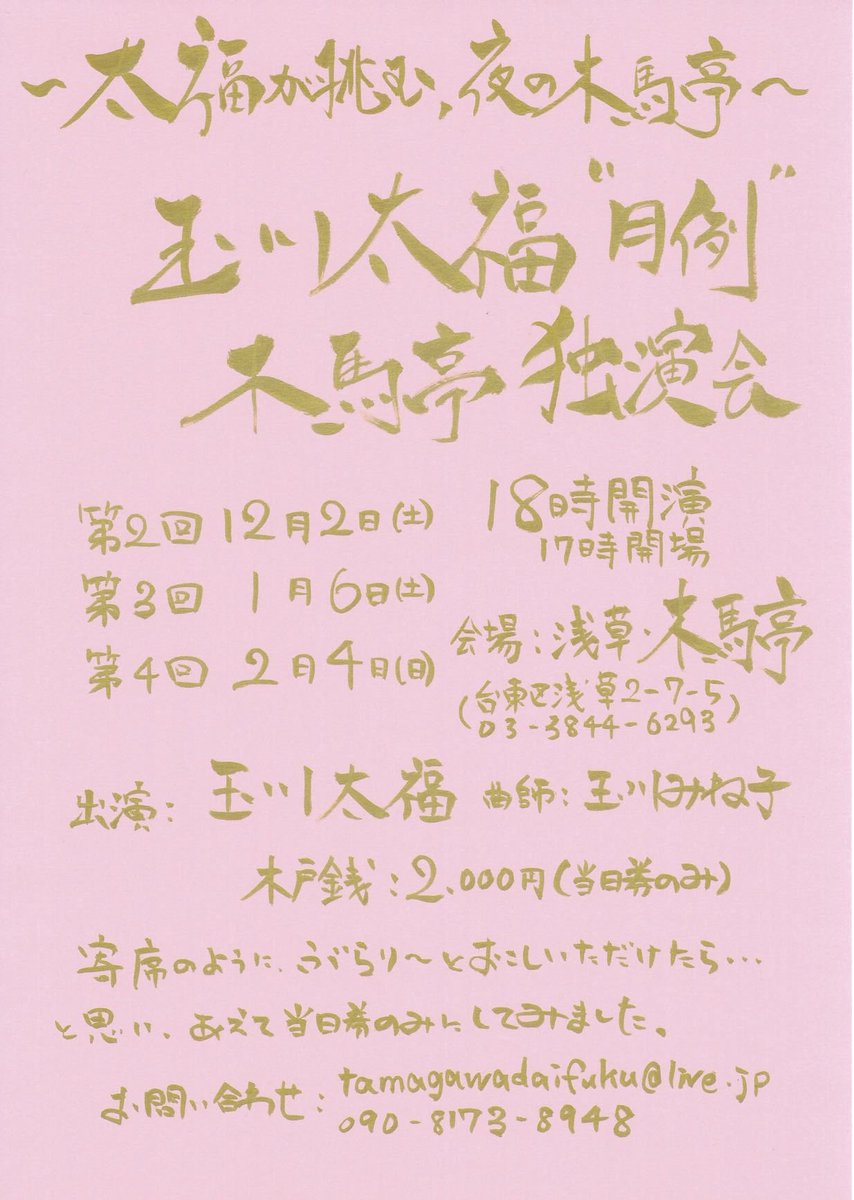 ～太福が挑む、夜の木馬亭～
玉川太福"月例"
木馬亭 独演会
第2回 12月2日(土)
第3回 1月6日(土)
第4回 2月4日(日)
18時開演
17時開場
会場:浅草・木馬亭
(台東区浅草2-7-5
03-3844-6293)
出演: 玉川太福 曲師:玉川みね子
木戸銭:2,000円(当日券のみ)
寄席のように、うぷらり～とおこしいただけたら…
と思い、あえて当日券のみにしてみました。
お問い合わせ: tamagawadaifuku@live.jp
090-8173-8948